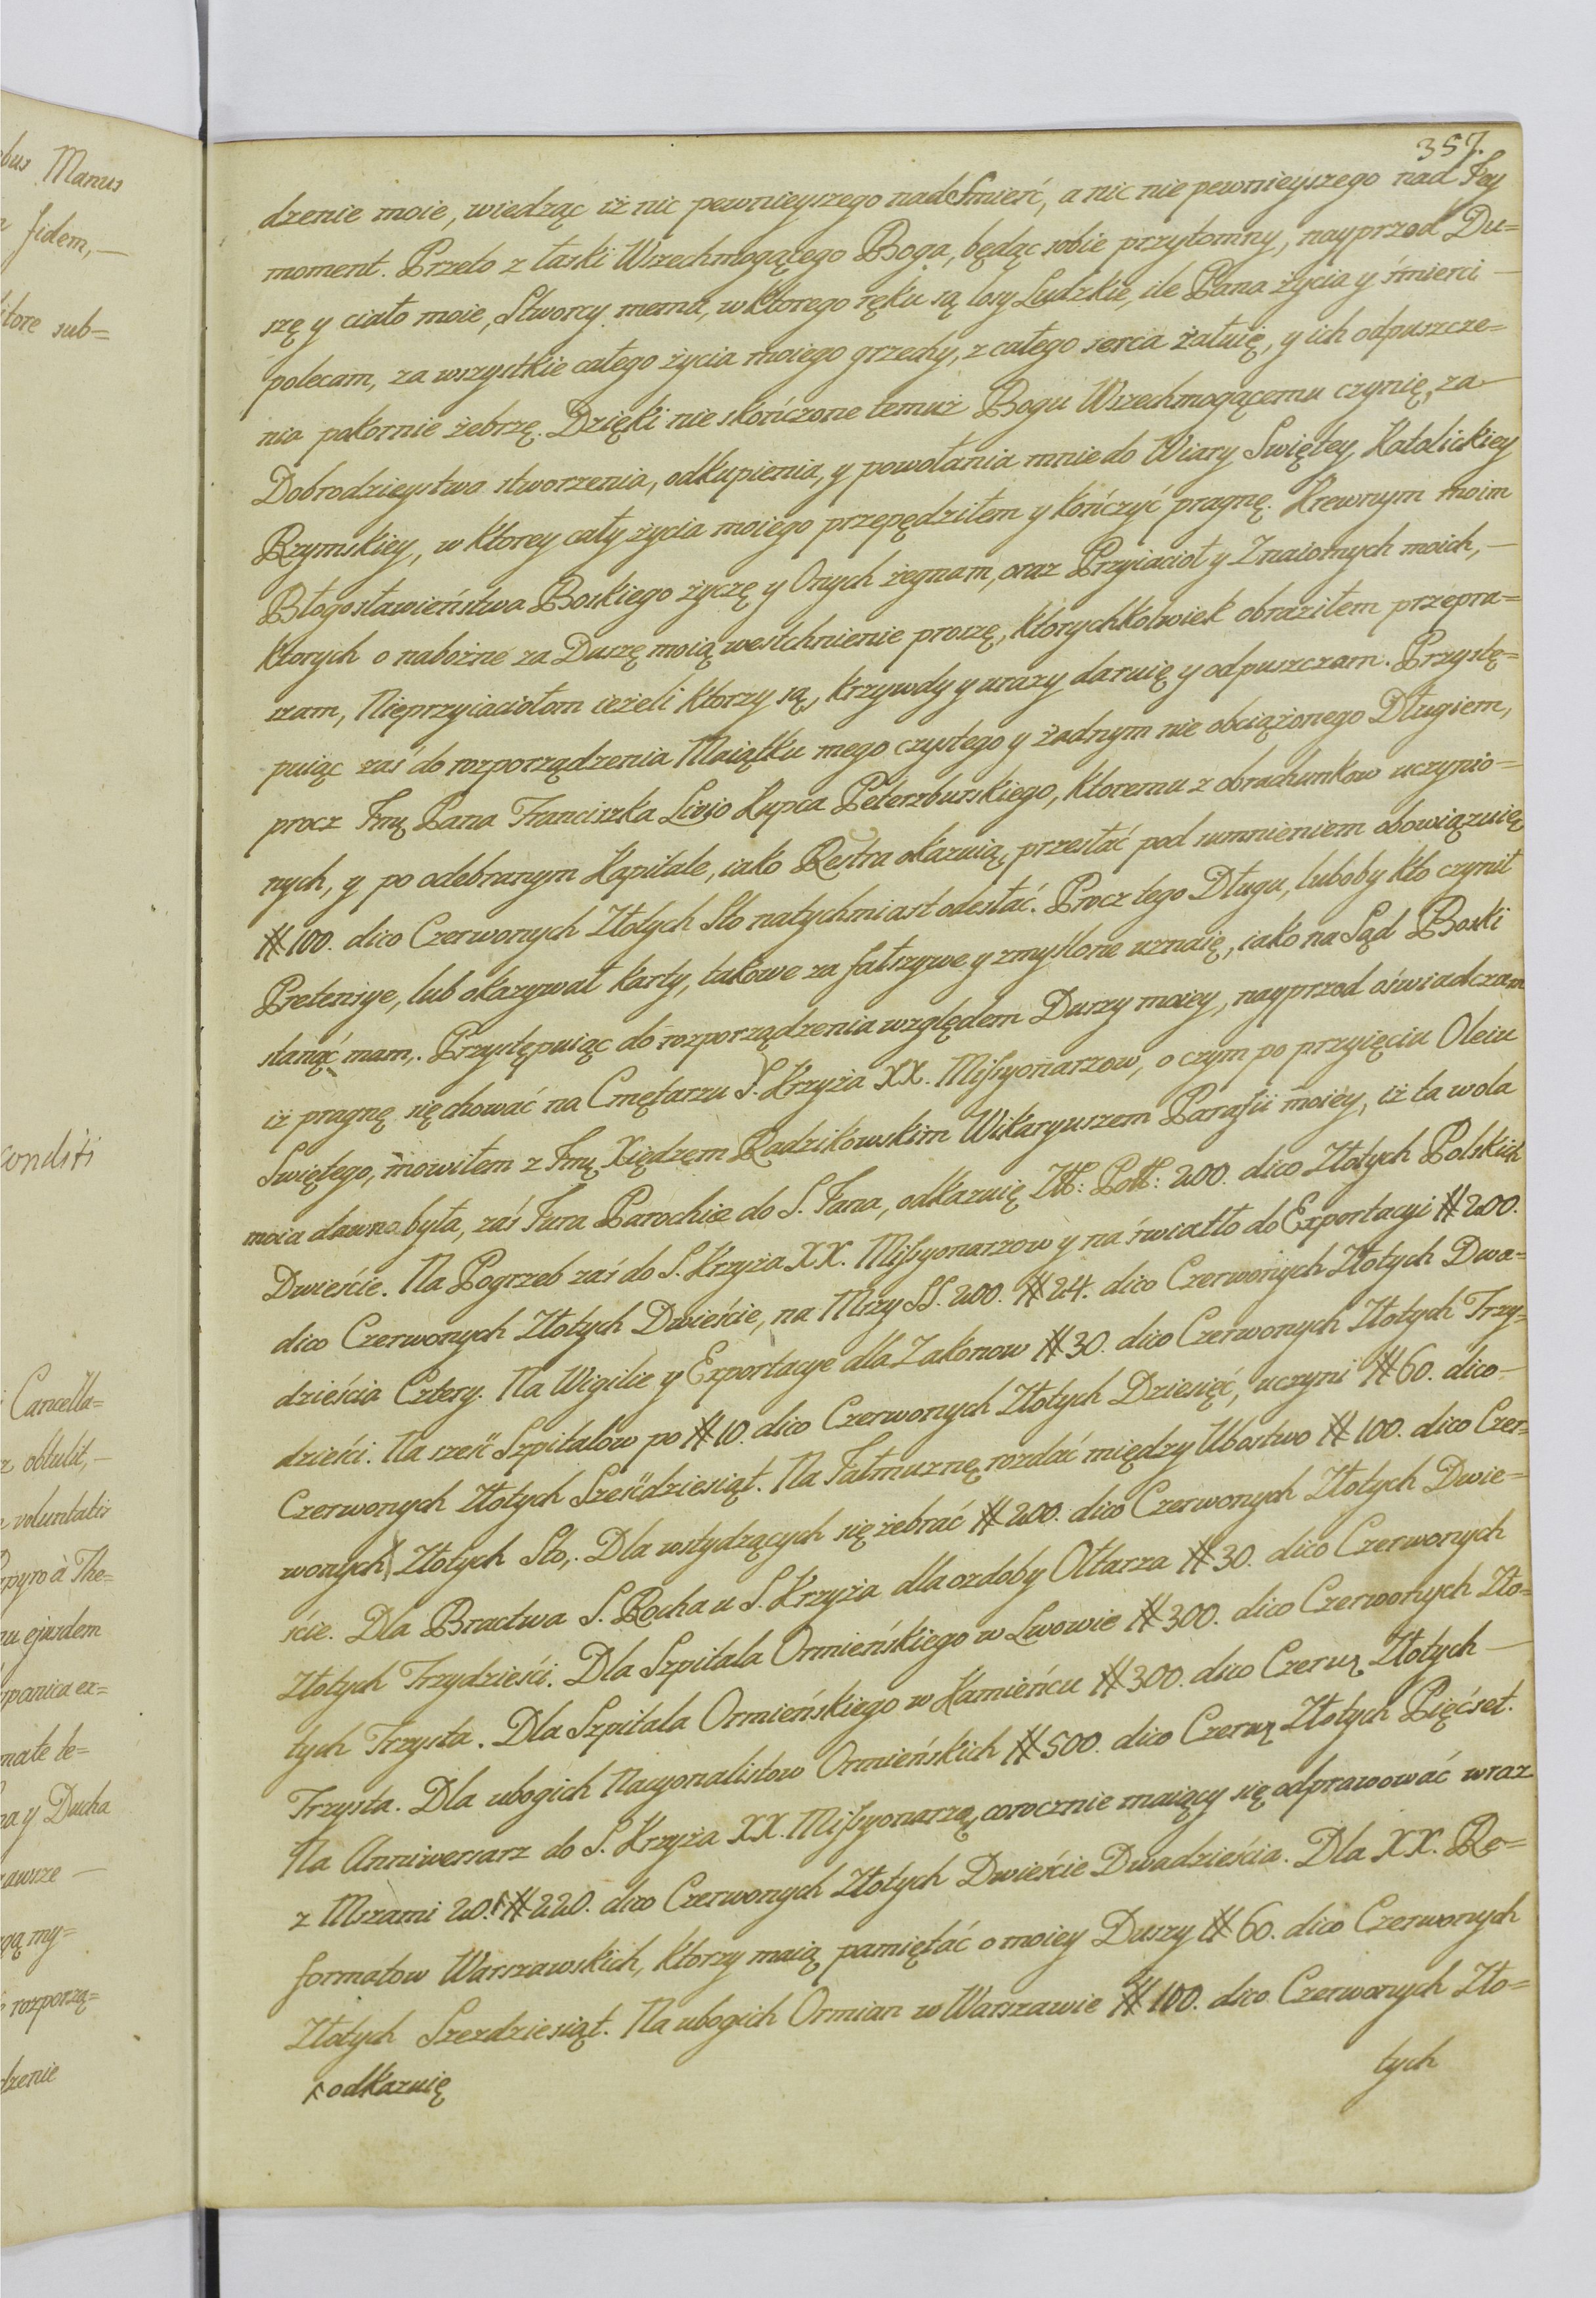 bus Manus
Fidem, —
litore sub=
conditi
Cancella=
obtulit, —
voluntatis
papyro à The=
ejusdem
ex=
te=
na y Ducha
zawsze —
my=
rozporzą=
dzenie
357.
dzenie moie, wiedząc iż nic pewnieyszego nad Smierć, a nic nie pewnieyszego nad Jey
moment. Przeto z łaski Wszechmogącego Boga, będąc sobie przytomny, nayprzod Du=
szę y ciało moie, Stworcy memu, w ktorego ręku są losy Ludzkie, ile Pana życia y śmierci —
polecam, za wszystkie całego życia moiego grzechy, z całego serca żałuię, y ich odpuszcze=
nia pokornie żebrzę. Dzięki nie skończone temuż Bogu Wszechmogącemu czynię, za —
Dobrodzieystwa stworzenia, odkupienia, y powołania mnie do Wiary Swiętey Katolickiey
Rzymskiey, w ktorey cały życia moiego przepędziłem y kończyć pragnę. Krewnym moim
Błogosławieństwa Boskiego życzę y Onych żegnam, oraz Przyiacioł y Znaiomych moich, —
ktorych o nabożne za Duszę moią westchnienie proszę, ktorychkolwiek obraziłem przepra=
szam, Nieprzyiaciołom ieżeli ktorzy są, krzywdy y urazy daruię y odpuszczam. Przystę=
puiąc zaś do rozporządzenia Maiątku mego czystego y żadnym nie obciążonego Długiem,
procz Jmę Pana Franciszka Livio Kupca Peterzburskiego, ktoremu z obrachunkow uczynio=
nych, y po odebranym Kapitale, iako Restra okazuią, przesłać pod sumnieniem obowiązuię
# 100. dico Czerwonych Złotych Sto natychmiast odesłać. Procz tego Długu, luboby kto czynił
Pretensye, lub okazywał karty, takowe za fałszywe y zmyślone uznaię, iako na Sąd Boski
stanąć mam,. Przystępuiąc do rozporządzenia względem Duszy moiey, nayprzod oświadczam
iż pragnę się chować na Cmętarzu S. Krzyża XX. Missyonarzow, o czym po przyięciu Oleiu
Swiętego, mowiłem z Jmę Xiędzem Radzikowskim Wikaryuszem Parafii moiey, iż ta wola
moia dawno była, zaś Jura Parochiæ do S. Jana, odkazuię Zł: Poł: 200. dico Złotych Polskich
Dwieście. Na Pogrzeb zaś do S. Krzyża XX. Missyonarzow y na światło do Exportacyi # 200.
dico Czerwonych Złotych Dwieście, na Mszy SS. 200. # 24. dico Czerwonych Złotych Dwa=
dzieścia Cztery. Na Wigilie y Exportacye dla Zakonow # 30. dico Czerwonych Złotych Trzy=
dzieści. Na sześć Szpitalow po # 10. dico Czerwonych Złotych Dziesięć, uczyni # 60. dico —
Czerwonych Złotych Sześćdziesiąt. Na Jałmużnę rozdać między Ubostwo # 100. dico Czer=
wonych Złotych Sto,. Dla wstydzących się żebrać # 200. dico Czerwonych Złotych Dwie=
ście. Dla Bractwa S. Rocha u S. Krzyża dla ozdoby Ołtarza # 30. dico Czerwonych
Złotych Trzydzieści. Dla Szpitala Ormieńskiego w Lwowie # 300. dico Czerwonych Zło=
tych Trzysta. Dla Szpitala Ormieńskiego w Kamieńcu # 300. dico Czerwę Złotych —
Trzysta. Dla ubogich Nacyonalistow Ormieńskich # 500. dico Czerwę Złotych Pięćset.
Na Anniwersarz do S. Krzyża XX. Missyonarzą, corocznie maiący się odprawować wraz
z Mszami 20. ⌈ # 220. dico Czerwonych Złotych Dwieście Dwadzieścia. Dla XX. Re=
formatow Warszawskich, ktorzy maią pamiętać o moiey Duszy # 60. dico Czerwonych
Złotych Szezdziesiąt. Na ubogich Ormian w Warszawie # 100. dico Czerwonych Zło=
tych
⌈ odkazuię